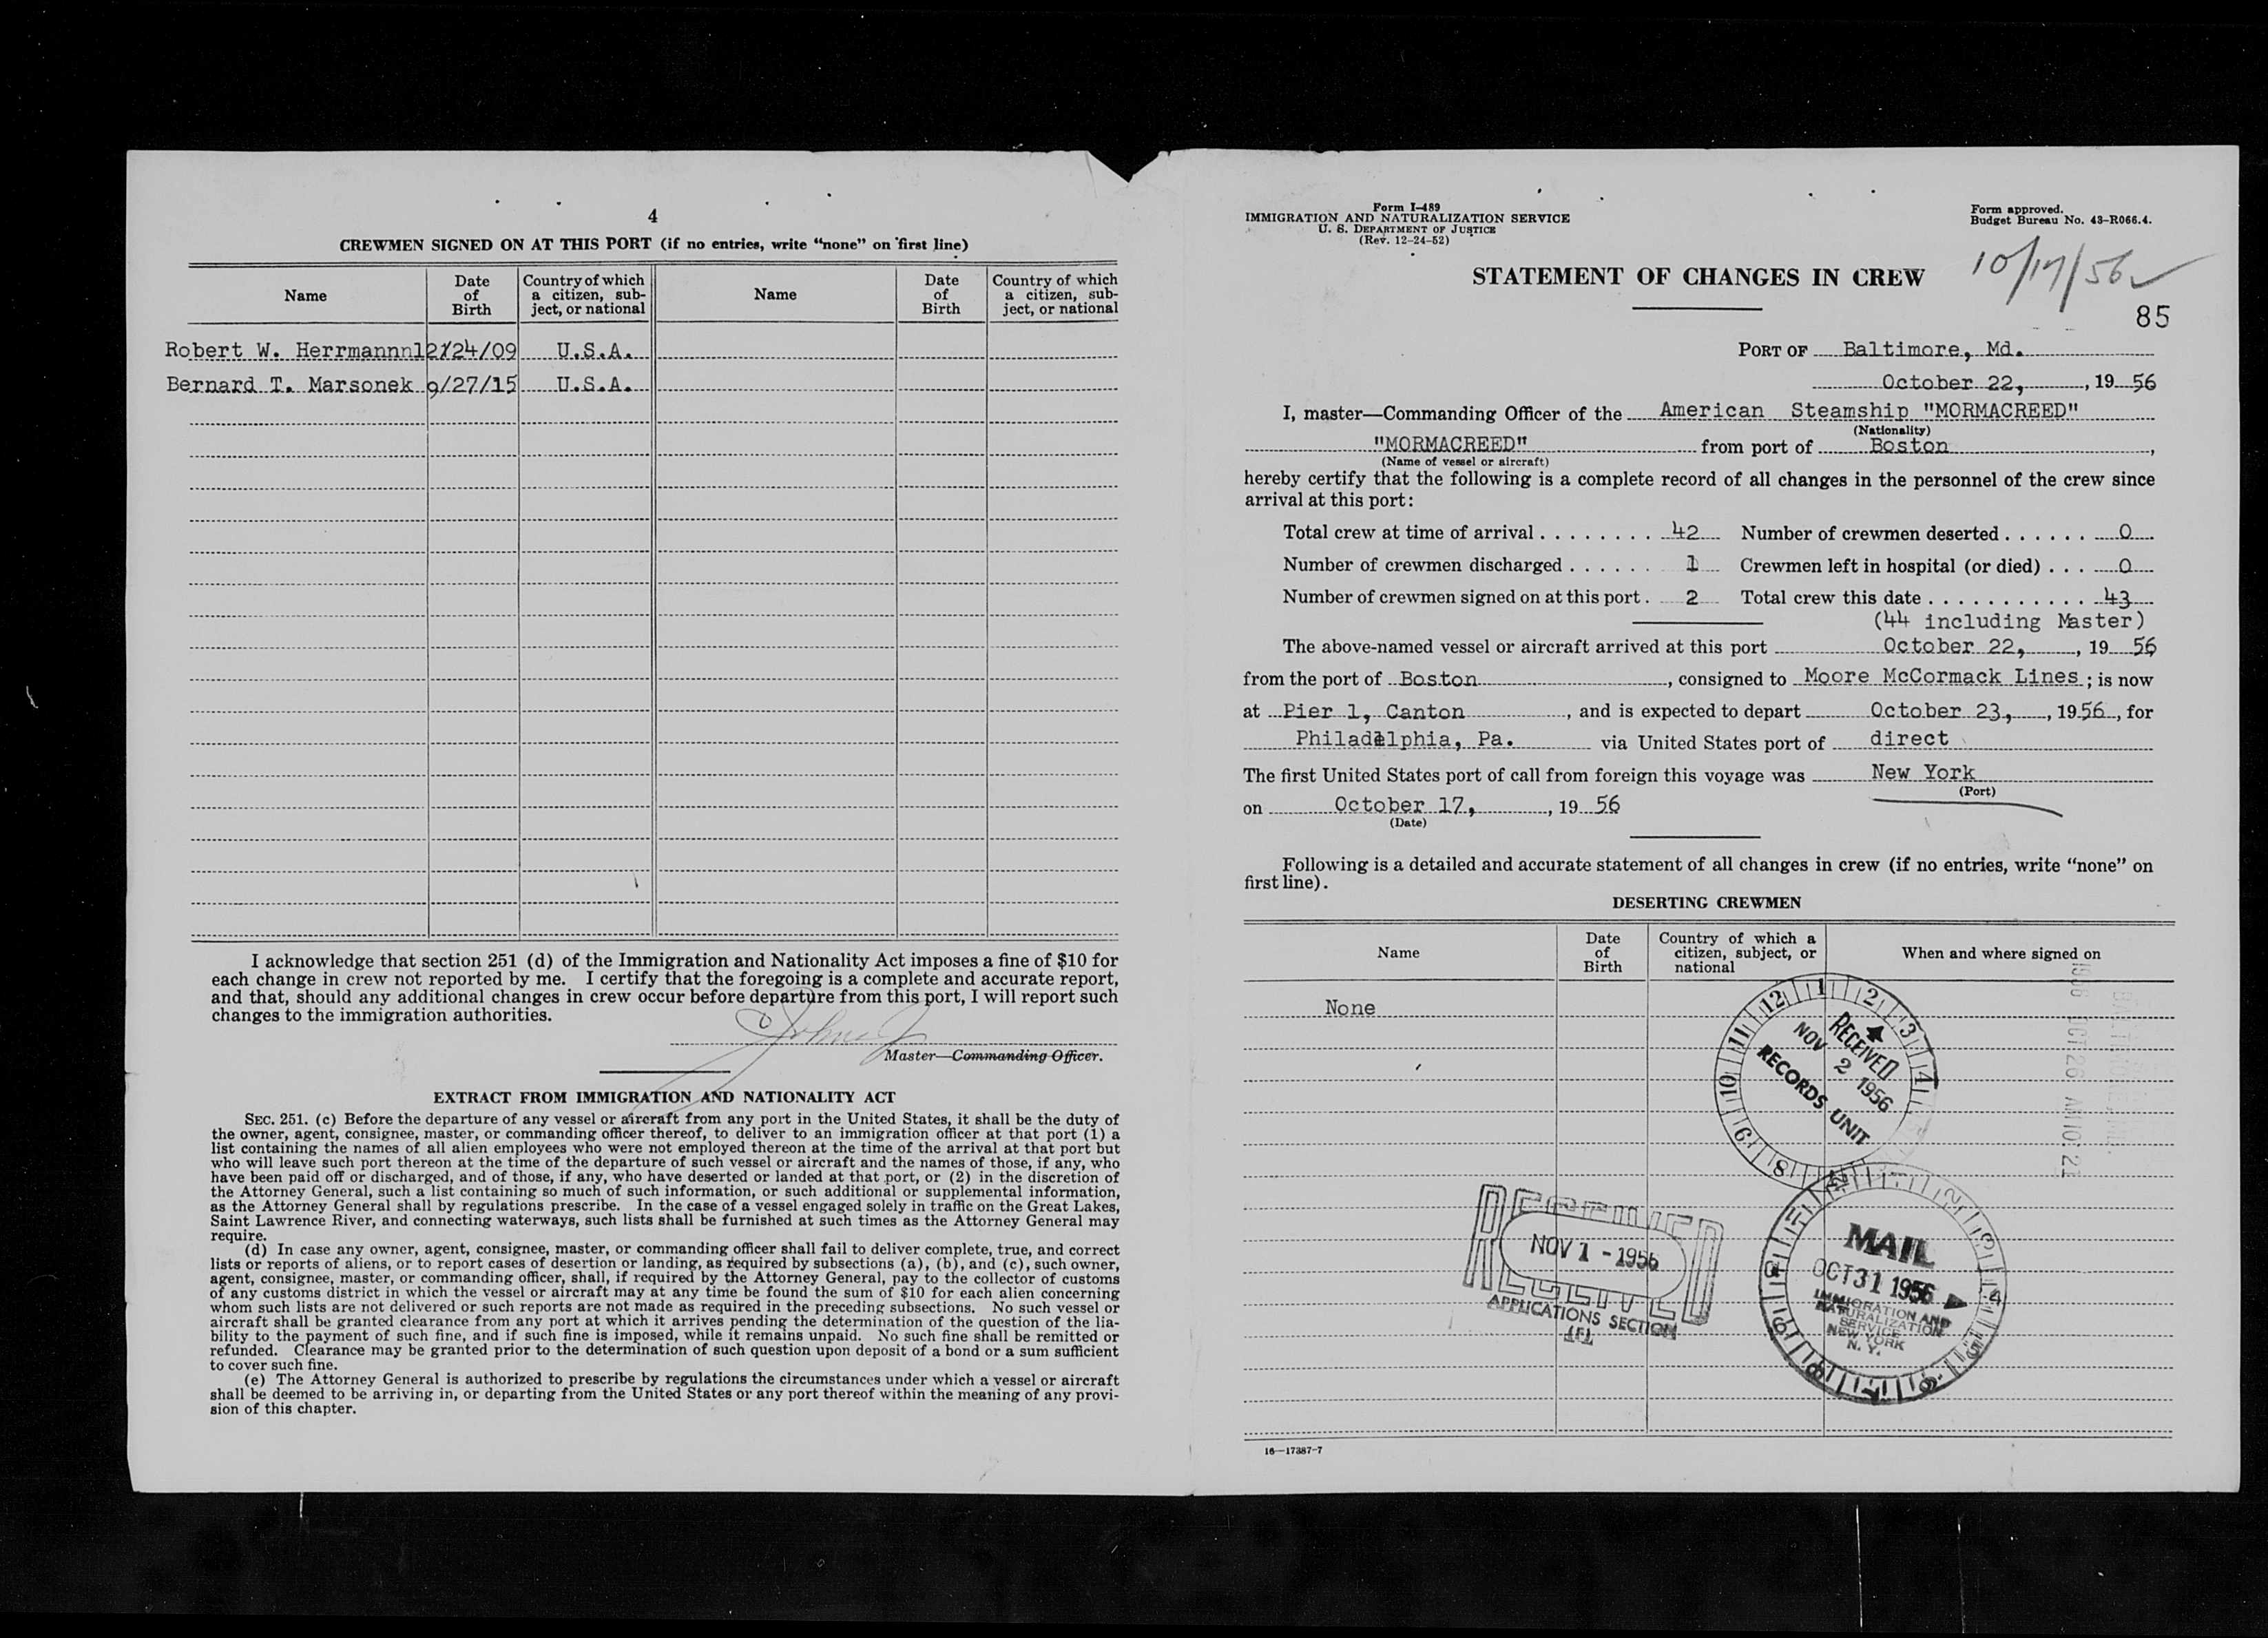 4
CREWMEN SIGNED ON AT THIS PORT (if no entries, write "none" on first line)
Name | Date of Birth | Country of which a citizen, subject, or national | Name | Date of Birth | Country of which a citizen, subject, or national
Robert W. Herrmannn12/24/09 U.S.A.
Bernard T. Marsonek 9/27/15 U.S.A.
I acknowledge that section 251 (d) of the Immigration and Nationality Act imposes a fine of $10 for
each change in crew not reported by me. I certify that the foregoing is a complete and accurate report,
and that, should any additional changes in crew occur before departure from this port, I will report such
changes to the immigration authorities.
Master—Commanding Officer.
EXTRACT FROM IMMIGRATION AND NATIONALITY ACT
SEC. 251. (c) Before the departure of any vessel or aircraft from any port in the United States, it shall be the duty of
the owner, agent, consignee, master, or commanding officer thereof, to deliver to an immigration officer at that port (1) a
list containing the names of all alien employees who were not employed thereon at the time of the arrival at that port but
who will leave such port thereon at the time of the departure of such vessel or aircraft and the names of those, if any, who
have been paid off or discharged, and of those, if any, who have deserted or landed at that port, or (2) in the discretion of
the Attorney General, such a list containing so much of such information, or such additional or supplemental information,
as the Attorney General shall by regulations prescribe. In the case of a vessel engaged solely in traffic on the Great Lakes,
Saint Lawrence River, and connecting waterways, such lists shall be furnished at such times as the Attorney General may
require.
(d) In case any owner, agent, consignee, master, or commanding officer shall fail to deliver complete, true, and correct
lists or reports of aliens, or to report cases of desertion or landing, as required by subsections (a), (b), and (c), such owner,
agent, consignee, master, or commanding officer, shall, if required by the Attorney General, pay to the collector of customs
of any customs district in which the vessel or aircraft may at any time be found the sum of $10 for each alien concerning
whom such lists are not delivered or such reports are not made as required in the preceding subsections. No such vessel or
aircraft shall be granted clearance from any port at which it arrives pending the determination of the question of the lia-
bility to the payment of such fine, and if such fine is imposed, while it remains unpaid. No such fine shall be remitted or
refunded. Clearance may be granted prior to the determination of such question upon deposit of a bond or a sum sufficient
to cover such fine.
(e) The Attorney General is authorized to prescribe by regulations the circumstances under which a vessel or aircraft
shall be deemed to be arriving in, or departing from the United States or any port thereof within the meaning of any provi-
sion of this chapter.
Form I-489
IMMIGRATION AND NATURALIZATION SERVICE
U. S. DEPARTMENT OF JUSTICE
(Rev. 12-24-52)
Form approved.
Budget Bureau No. 43-R066.4.
10/17/56
STATEMENT OF CHANGES IN CREW
85
PORT OF Baltimore, Md.
October 22, , 19 56
I, master—Commanding Officer of the American Steamship "MORMACREED"
(Nationality)
"MORMACREED" from port of Boston ,
(Name of vessel or aircraft)
hereby certify that the following is a complete record of all changes in the personnel of the crew since
arrival at this port:
Total crew at time of arrival . . . . . . . . 42 Number of crewmen deserted . . . . . . 0
Number of crewmen discharged . . . . . . 1 Crewmen left in hospital (or died) . . . 0
Number of crewmen signed on at this port . 2 Total crew this date . . . . . . . . . . . . 43
(44 including Master)
The above-named vessel or aircraft arrived at this port October 22, , 19 56
from the port of Boston , consigned to Moore McCormack Lines ; is now
at Pier 1, Canton , and is expected to depart October 23, , 1956 , for
Philadelphia, Pa. via United States port of direct
The first United States port of call from foreign this voyage was New York
(Port)
on October 17, , 19 56
(Date)
Following is a detailed and accurate statement of all changes in crew (if no entries, write "none" on
first line).
DESERTING CREWMEN
Name | Date of Birth | Country of which a citizen, subject, or national | When and where signed on
None
12 1 2 3 4 8 9 10 11
RECEIVED
NOV 2 1956
RECORDS UNIT
1956 OCT 26 AM 10:22
BALTIMORE, MD.
RECEIVED
NOV 1 - 1956
APPLICATIONS SECTION
MAIL
OCT 31 1956
IMMIGRATION AND
NATURALIZATION
SERVICE
NEW YORK
N. Y.
16—17387-7